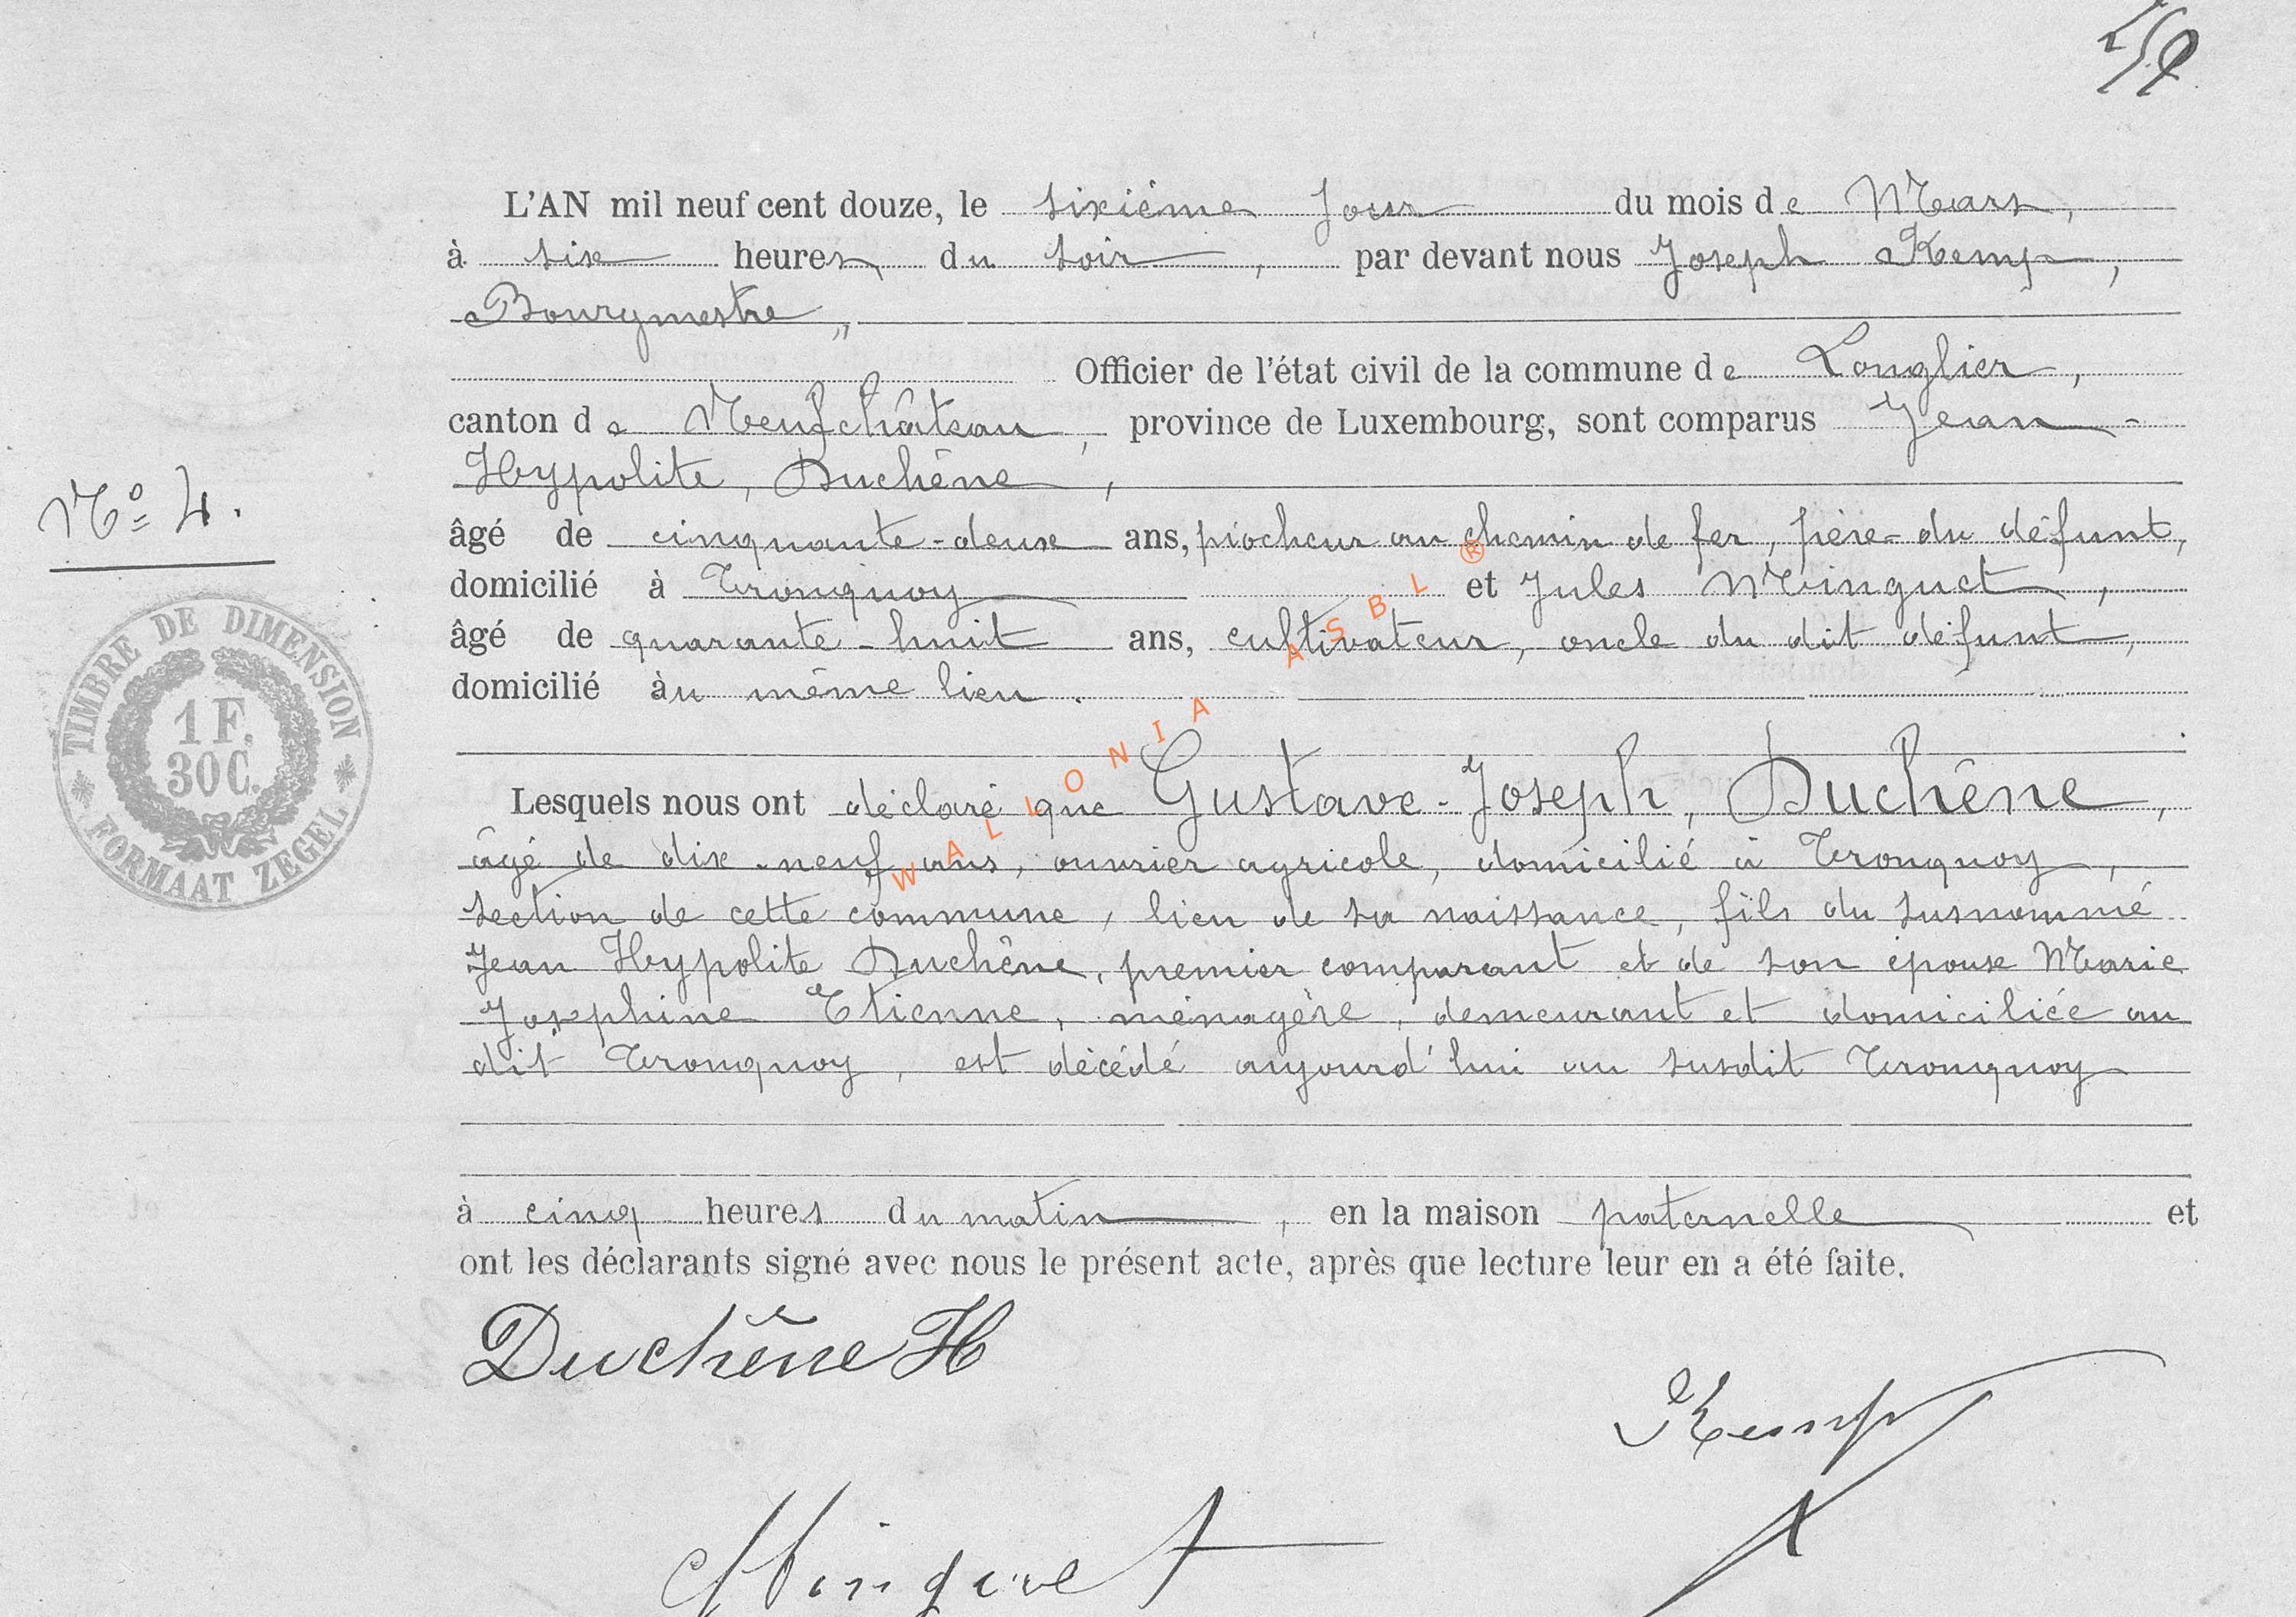 L'AN mil neuf cent douze, le sixième jour du mois de Mars,
à six heures du soir, par devant nous Joseph Kemp,
Bourgmestre,,
Officier de l'état civil de la commune de Longlier,
canton de Neufchâteau, province de Luxembourg, sont comparus Jean-
Hypolite, Duchêne,
N° 4.
âgé de cinquante-deux ans, piocheur au chemin de fer, père du défunt,
domicilié à Tronquoy et Jules Minguet,
âgé de quarante-huit ans, cultivateur, oncle du dit défunt,
domicilié àu même lieu.
TIMBRE DE DIMENSION
1 F.
30 C.
FORMAAT ZEGEL
Lesquels nous ont déclaré que Gustave-Joseph, Duchêne,
âgé de dix-neuf ans, ouvrier agricole, domicilié à Tronquoy,
section de cette commune, lieu de sa naissance, fils du susnommé
Jean Hypolite Duchêne, premier comparant et de son épouse Marie
Josephine Etienne, ménagère, demeurant et domiciliée au
dit Tronquoy, est décédé aujourd'hui au susdit Tronquoy
à cinq heures du matin, en la maison paternelle et
ont les déclarants signé avec nous le présent acte, après que lecture leur en a été faite.
Duchêne H
Kemp
Minguet
WALLONIA ASBL ®